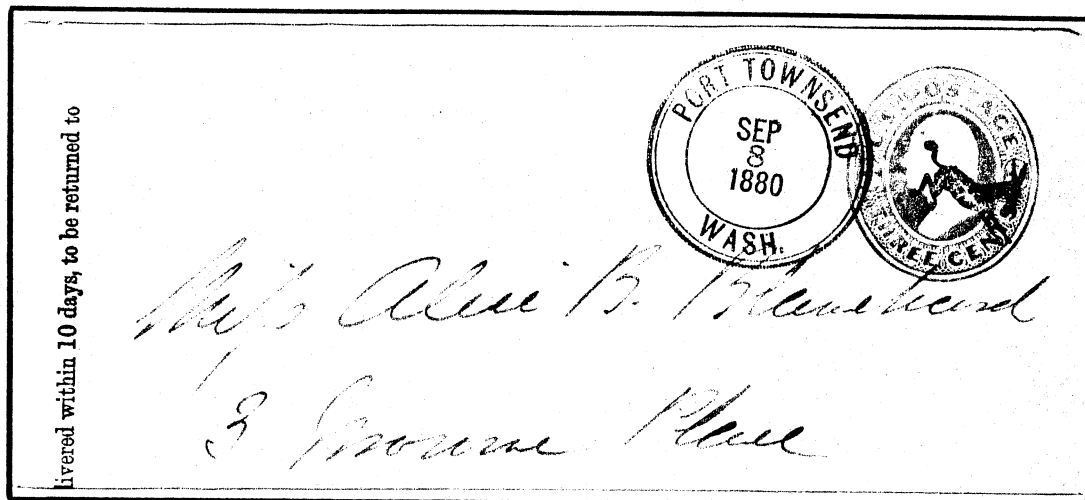 livered within 10 days, to be returned to
PORT TOWNSEND
SEP
8
1880
WASH.
POSTAGE
THREE CENTS
Miss Alice B. Blanchard
3 Place